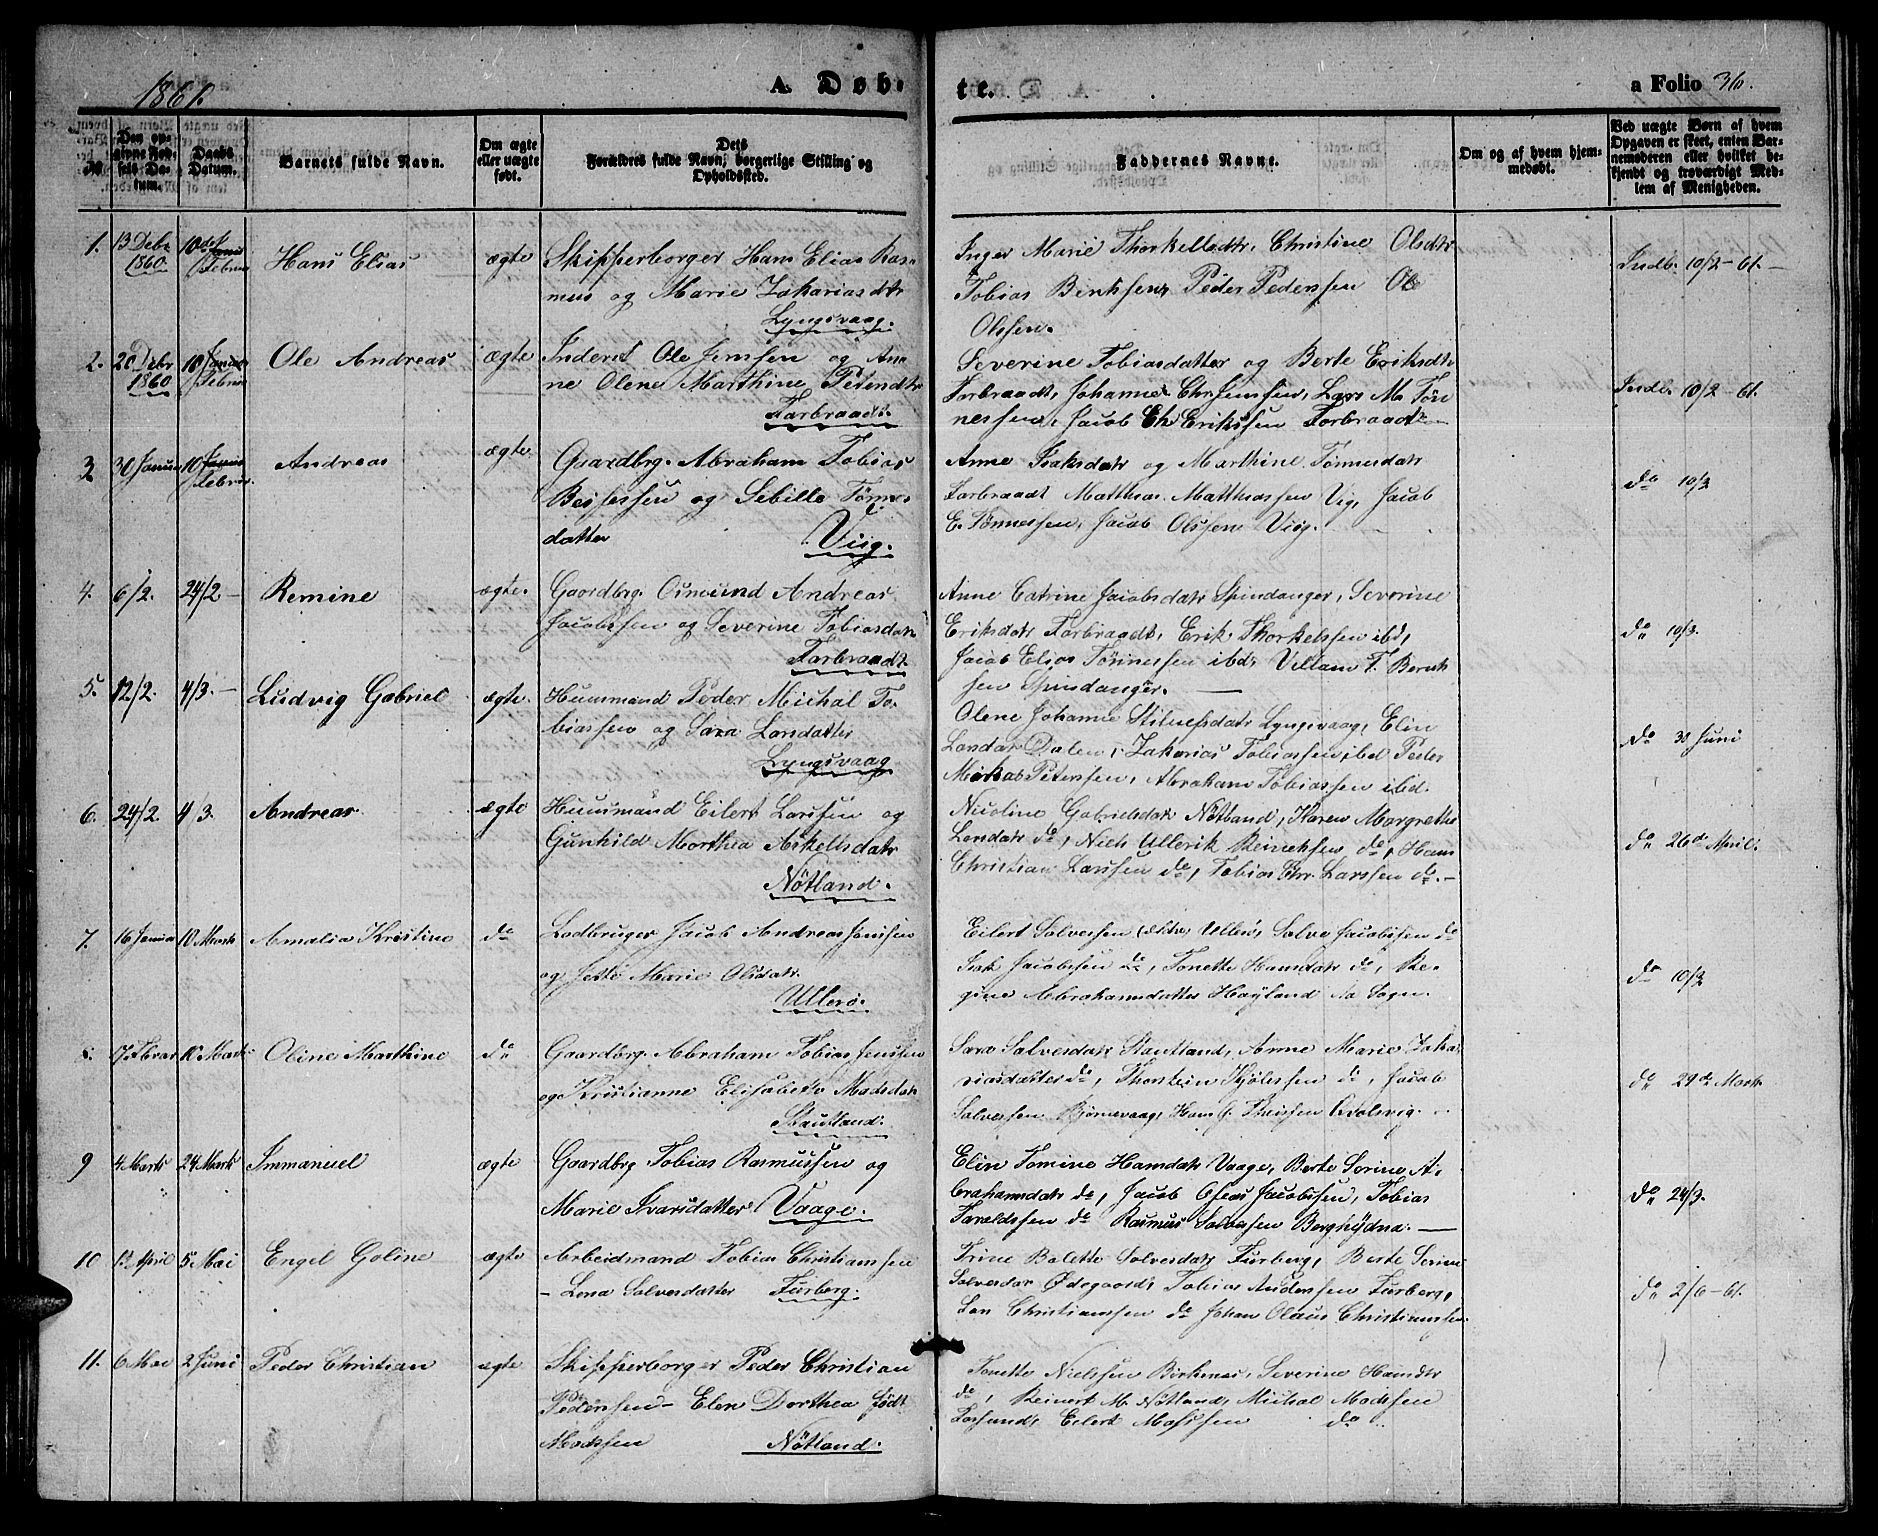 1861.
A. Døb-
te.
a Folio 36.
No.
Den op-
givne Fød-
sels Da-
tum.
Daabs
Datum.
Barnets fulde Navn.
Om ægte
eller uægte
født.
Dets
Forældres fulde Navn, borgerlige Stilling og
Opholdssted.
Faddernes Navne.
Om og af hvem hjem-
medøbt.
Ved uægte Børn af hvem
Opgaven er skeet, enten Bar-
nemoderen eller hvilket be-
kjendt og troværdigt Med-
lem af Menigheden.
1. 13 Debr 1860 10de Februar Hans Elias ægte Skipperborger Hans Elias Ras-
mus og Marie Zakariasdtr
Lyngsvaag.
Inger Marie Thorkelsdtr, Christine Olsdtr
Tobias Bentsen, Peder Pedersen Ole
Olssen.
Indb. 10/2-61.
2. 20 Debr 1860 10 Februar Ole Andreas ægte Inderst Ole Jenssen og An-
ne Olene Marthine Petersdtr
Farbraadt.
Severine Tobiasdatter og Berte Eriksdtr
Farbraadt, Johannes Chr. Jenssen, Lars M. Tøn
nessen, Jacob Chr Erikssen Farbraadt
Indb. 10/2-61.
3 30 Januar 10 Februar Andreas ægte Gaardbrg. Abraham Tobias
Berfessen og Sebille Tønnes
datter Viig.
Anne Isaksdatr og Marthine Tønnesdatr
Farbraadt Matthias Matthiassen Vig, Jacob
E. Tønnessen, Jacob Olssen Viig.
do 10/2
4. 6/2. 24/2 Remine ægte. Gaardbrg. Osmund Andreas
Jacobssen og Severine Tobiasdatr
Farbraadt
Anne Catrine Jacobsdatr Spindanger, Severine
Eriksdatr Farbraadt, Erik Thorkelssen ibd,
Jacob Elias Tønnessen ibd, Villam T. Bernt
sen Spindanger.
do 10/3.
5. 12/2. 4/3. Ludvig Gabriel ægte. Huusmand Peder Michal To-
biassen og Sara Larsdatter
Lyngsvaag
Olene Johanne Stilnessdatr Lyngsvaag, Elin
Larsdatr Dalen, Zakarias Tobiassen, ibd Peder
Mikal Peterssen, Abraham Tobiassen ibd.
do 30 Juni
6. 24/2. 4/3. Andreas. ægte Huusmand Eilert Larssen og
Gunhild Marthea Askelsdatr
Nøtland.
Nicoline Gabrielsdatr Nøtland, Karen Margrethe
Larsdatr do, Niels Ullerik Reinertsen do, Hans
Christian Larssen do, Tobias Chr. Larssen do.
do 26de April.
7. 16 Januar 10 Marts Amalia Kristine do Lodbruger Jacob Andreas Jenssen
og Jette Marie Olsdatr
Ullerø.
Eilert Salvessen Ullerø, Salve Jacobssen do
Isak Jacobssen do, Tonette Hansdatr do, Re-
gine Abrahamsdatter Haaland Aa Sogn.
do 10/3
8. 17 Febrar 10 Marts Oline Marthine do Gaardbrg. Abraham Tobias Jenssen
og Kristianne Elisabeth Madsdatr
Stautland.
Sara Salvesdatr Stautland, Anne Marie Zaka
riasdatter do, Thorstein Kjølessen do, Jacob
Salvessen Bjørnevaag, Hans G. Theissen Qvalevig.
do 29de Marts
9 4 Marts 24 Marts Immanuel ægte Gaardbrg Tobias Rasmussen og
Marie Ivarsdatter Vaage.
Elin Tomine Hansdatr Vaage, Berte Serine A-
brahamsdatr do, Jacob Oseas Jacobssen, Tobias
Taraldssen do Rasmus Salvessen Berghydna.
do 24/3.
10 13 April 5 Mai Engel Goline ægte Arbeidmand Tobias Christianssen
- Lena Salvesdatter Furberg.
Trine Balette Salvesdatr Furberg, Berte Serine
Salvesdatr Ødegaard, Tobias Anderssen Furberg,
Lars Christianssen do Johan Olaus Christianssen
do 2/6-61.
11. 6 Mai 2 Juni Peder Christian ægte Skipperborger Peder Christian
Pederssen - Elen Dorthea født
Madssen Nøtland.
Tonette Nielssen Birkenes, Severine Hansdtr
do, Reinert M. Nøtland, Michal Madssen
Farsund, Eilert Mossen do.